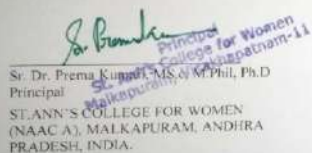 Sr. Prema Kumari
Principal
St. Ann's College for Women
Malkapuram, Visakhapatnam-11
Sr. Dr. Prema Kumari, MS & M.Phil, Ph.D
Principal
ST.ANN'S COLLEGE FOR WOMEN
(NAAC A), MALKAPURAM, ANDHRA
PRADESH, INDIA.